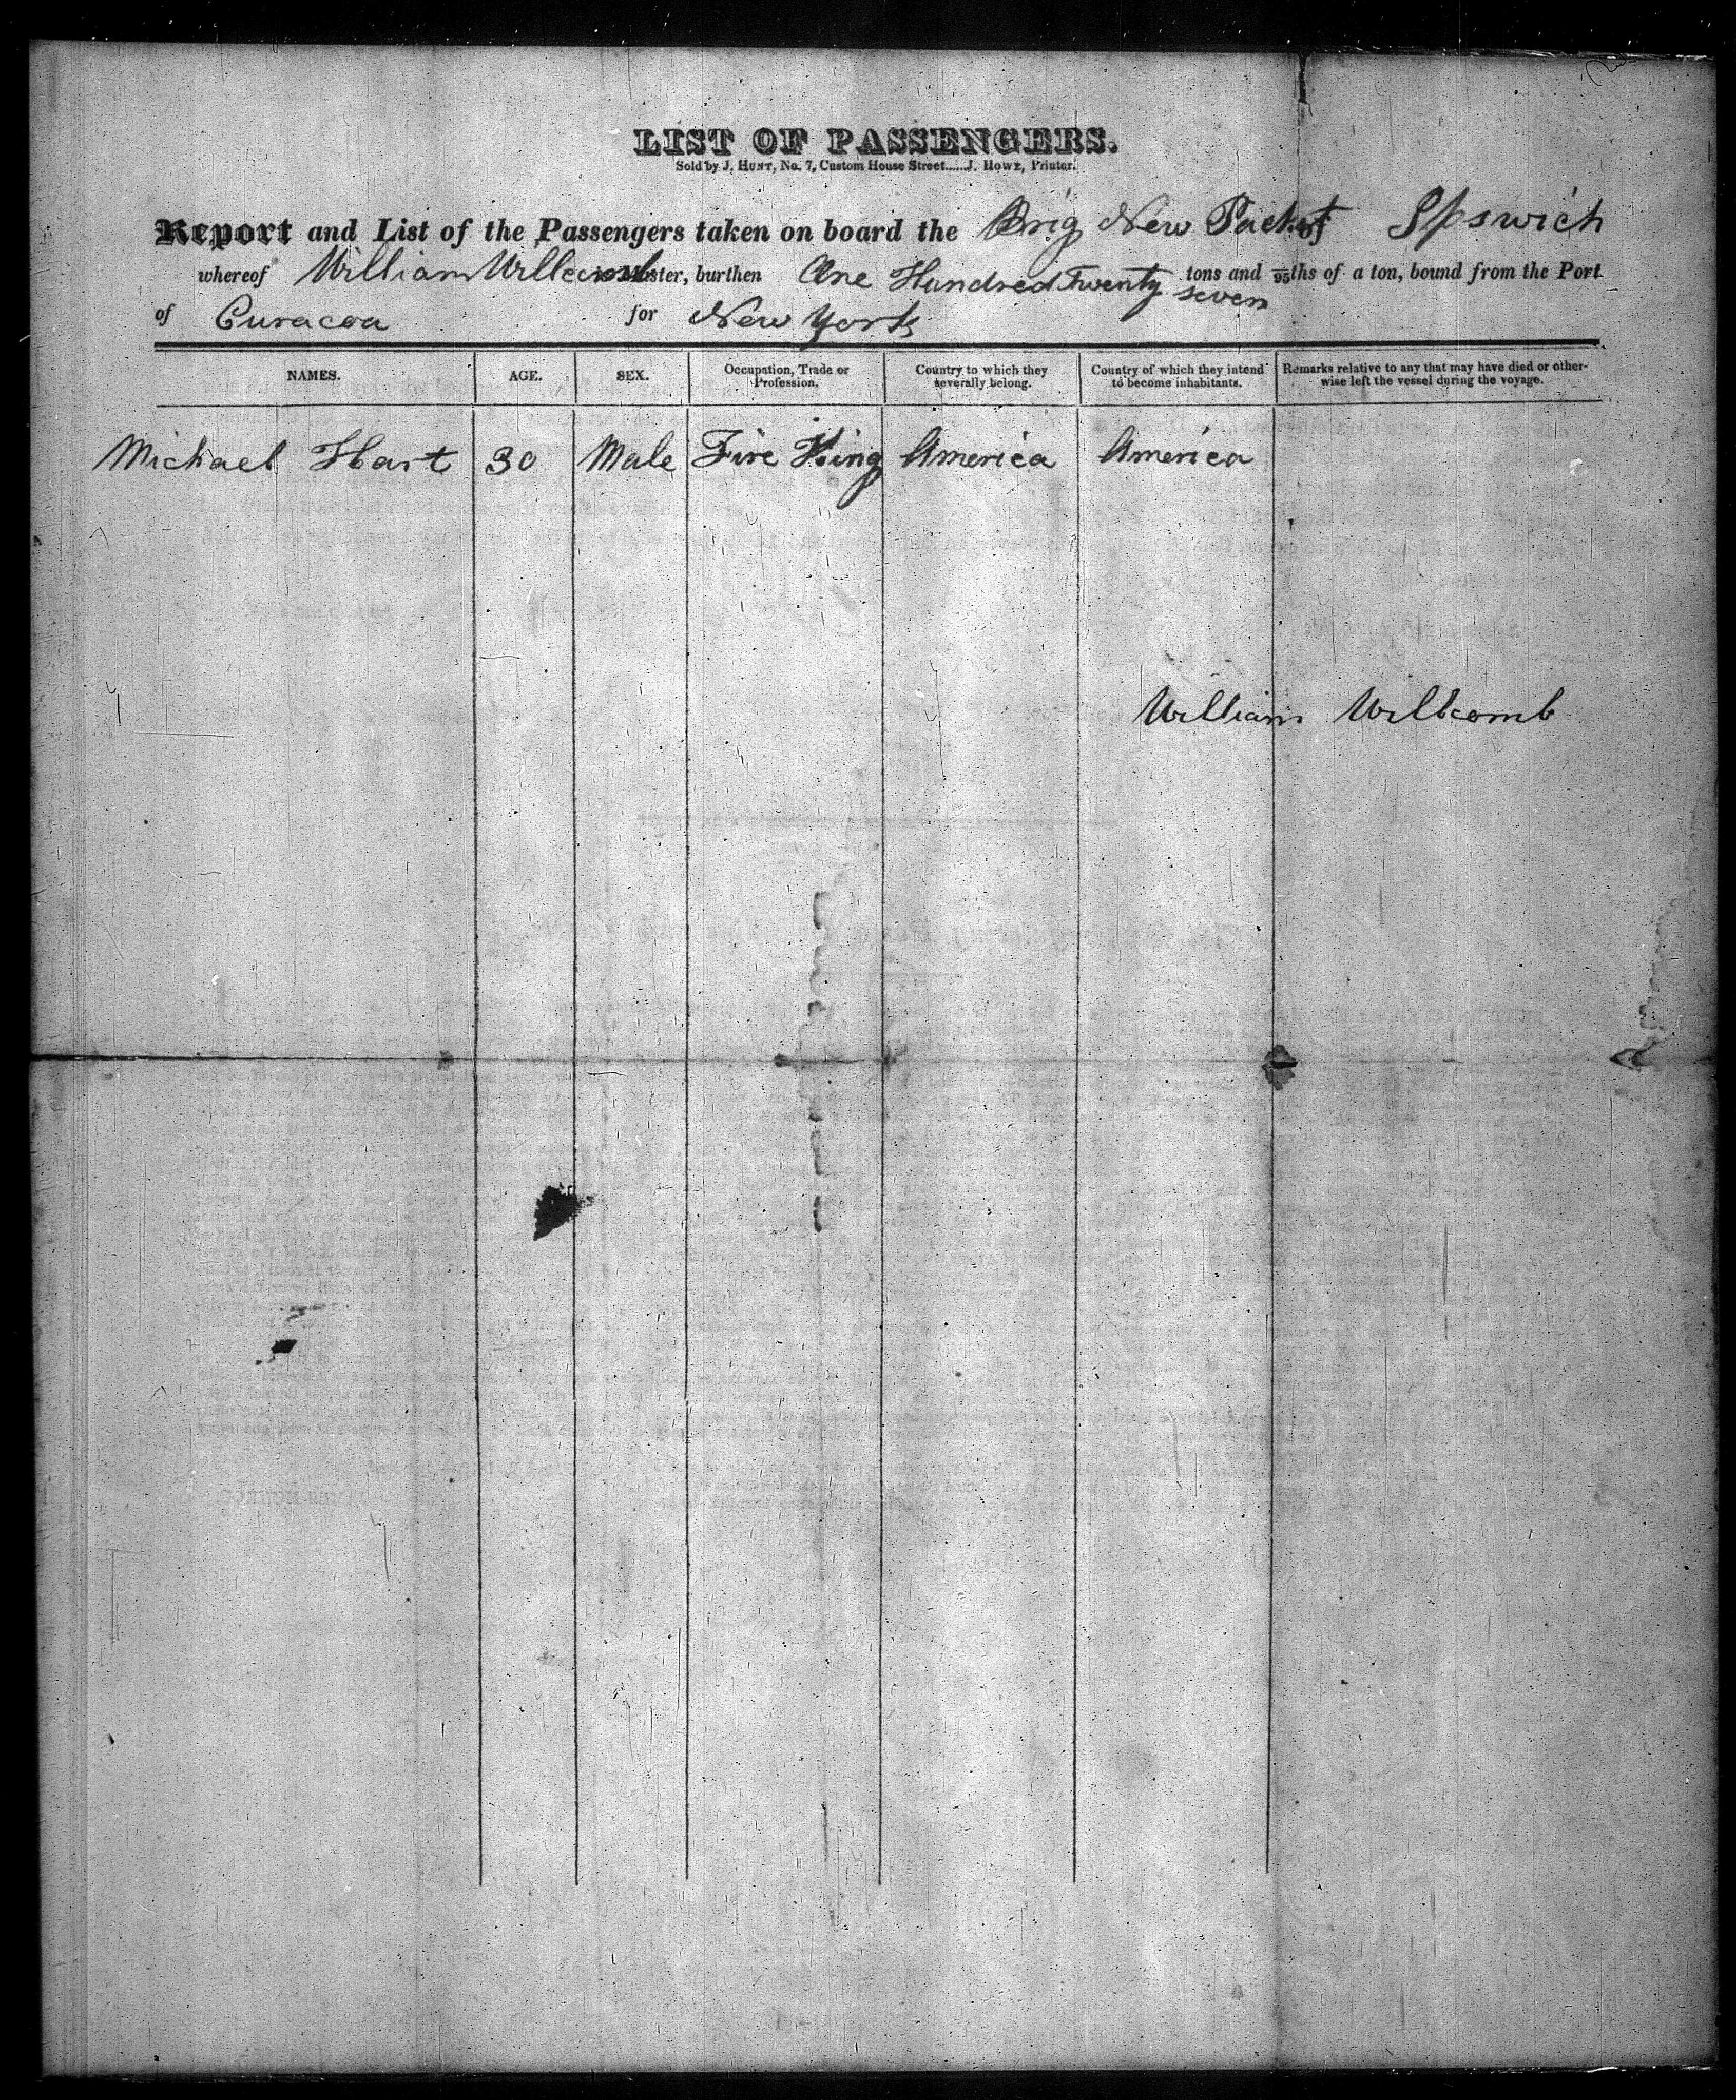 LIST OF PASSENGERS.
Sold by J. HUNT, No. 7, Custom House Street.....J. HOWE, Printer.
Report and List of the Passengers taken on board the Brig New Packet of Ipswich
whereof William Willcomb is Master, burthen One Hundred Twenty seven tons and 95ths of a ton, bound from the Port
of Curacoa for New York
NAMES. AGE. SEX. Occupation, Trade or Profession. Country to which they severally belong. Country of which they intend to become inhabitants. Remarks relative to any that may have died or otherwise left the vessel during the voyage.
Michael Hart 30 Male Fire King America America
William Willcomb